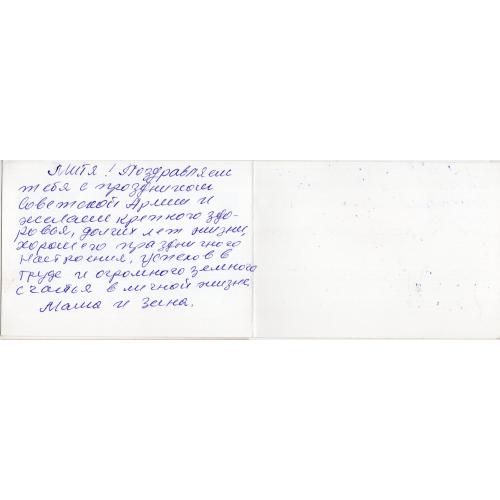 Митя! Поздравляем
тебя с праздником
Советской Армии и
желаем крепкого здо-
ровья, долгих лет жизни,
хорошего праздничного
настроения, успехов в
труде и огромного земного
счастья в личной жизни.
Мама и Зина.